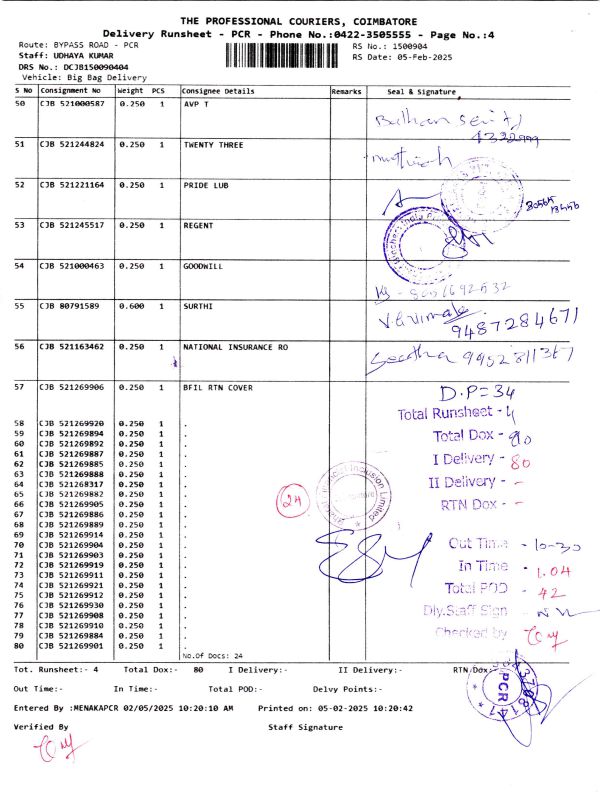 THE PROFESSIONAL COURIERS, COIMBATORE
Delivery Runsheet - PCR - Phone No.:0422-3505555 - Page No.:4
Route: BYPASS ROAD - PCR
RS No.: 1500904
Staff: UDHAYA KUMAR
RS Date: 05-Feb-2025
DRS No.: DCJB150090404
Vehicle: Big Bag Delivery
S No Consignment No Weight PCS Consignee Details Remarks Seal & Signature
50 CJB 521000587 0.250 1 AVP T
51 CJB 521244824 0.250 1 TWENTY THREE
52 CJB 521221164 0.250 1 PRIDE LUB
53 CJB 521245517 0.250 1 REGENT
54 CJB 521000463 0.250 1 GOODWILL
55 CJB 80791589 0.600 1 SURTHI
9487284671
56 CJB 521163462 0.250 1 NATIONAL INSURANCE RO
Seetha 9952811367
57 CJB 521269906 0.250 1 BFIL RTN COVER
D.P=34
Total Runsheet - 4
58 CJB 521269920 0.250 1 .
59 CJB 521269894 0.250 1 .
Total Dox - 90
60 CJB 521269892 0.250 1 .
61 CJB 521269887 0.250 1 .
I Delivery - 80
62 CJB 521269885 0.250 1 .
63 CJB 521269888 0.250 1 .
64 CJB 521268317 0.250 1 .
II Delivery - -
65 CJB 521269882 0.250 1 .
24
66 CJB 521269905 0.250 1 .
RTN Dox - -
67 CJB 521269886 0.250 1 .
68 CJB 521269889 0.250 1 .
69 CJB 521269914 0.250 1 .
70 CJB 521269904 0.250 1 .
Out Time - 10-30
71 CJB 521269903 0.250 1 .
72 CJB 521269919 0.250 1 .
In Time - 1.04
73 CJB 521269911 0.250 1 .
74 CJB 521269921 0.250 1 .
Total POD - 42
75 CJB 521269912 0.250 1 .
76 CJB 521269930 0.250 1 .
Dly.Staff Sign -
77 CJB 521269908 0.250 1 .
78 CJB 521269910 0.250 1 .
79 CJB 521269884 0.250 1 .
Checked by
80 CJB 521269901 0.250 1 .
No.Of Docs: 24
Tot. Runsheet:- 4 Total Dox:- 80 I Delivery:- II Delivery:- RTN Dox:-
PCR
Out Time:- In Time:- Total POD:- Delvy Points:-
Entered By :MENAKAPCR 02/05/2025 10:20:10 AM Printed on: 05-02-2025 10:20:42
Verified By Staff Signature